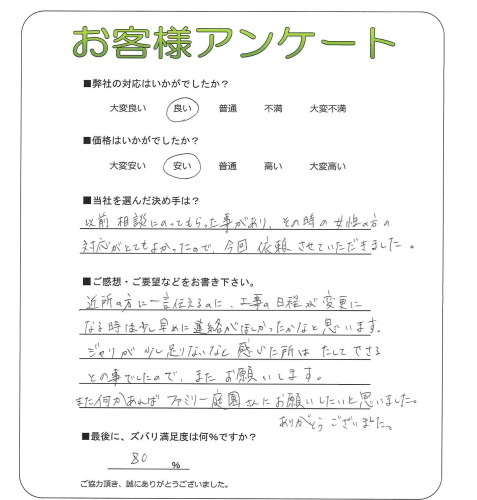 お客様アンケート
■弊社の対応はいかがでしたか？
大変良い　良い　普通　不満　大変不満
■価格はいかがでしたか？
大変安い　安い　普通　高い　大変高い
■当社を選んだ決め手は？
以前 相談にのってもらった事があり、その時の女性の方の
対応がとてもよかったので、今回 依頼 させていただきました。
■ご感想・ご要望などをお書き下さい。
近所の方に一言伝えるのに、工事の日程が変更に
なる時は少し早めに連絡がほしかったかなと思います。
ジャリが少し足りないなと感じた所は たしてできる
との事でしたので、またお願いします。
また何かあればファミリー庭園さんにお願いしたいと思いました。
ありがとうございました。
■最後に、ズバリ満足度は何％ですか？
80 ％
ご協力頂き、誠にありがとうございました。